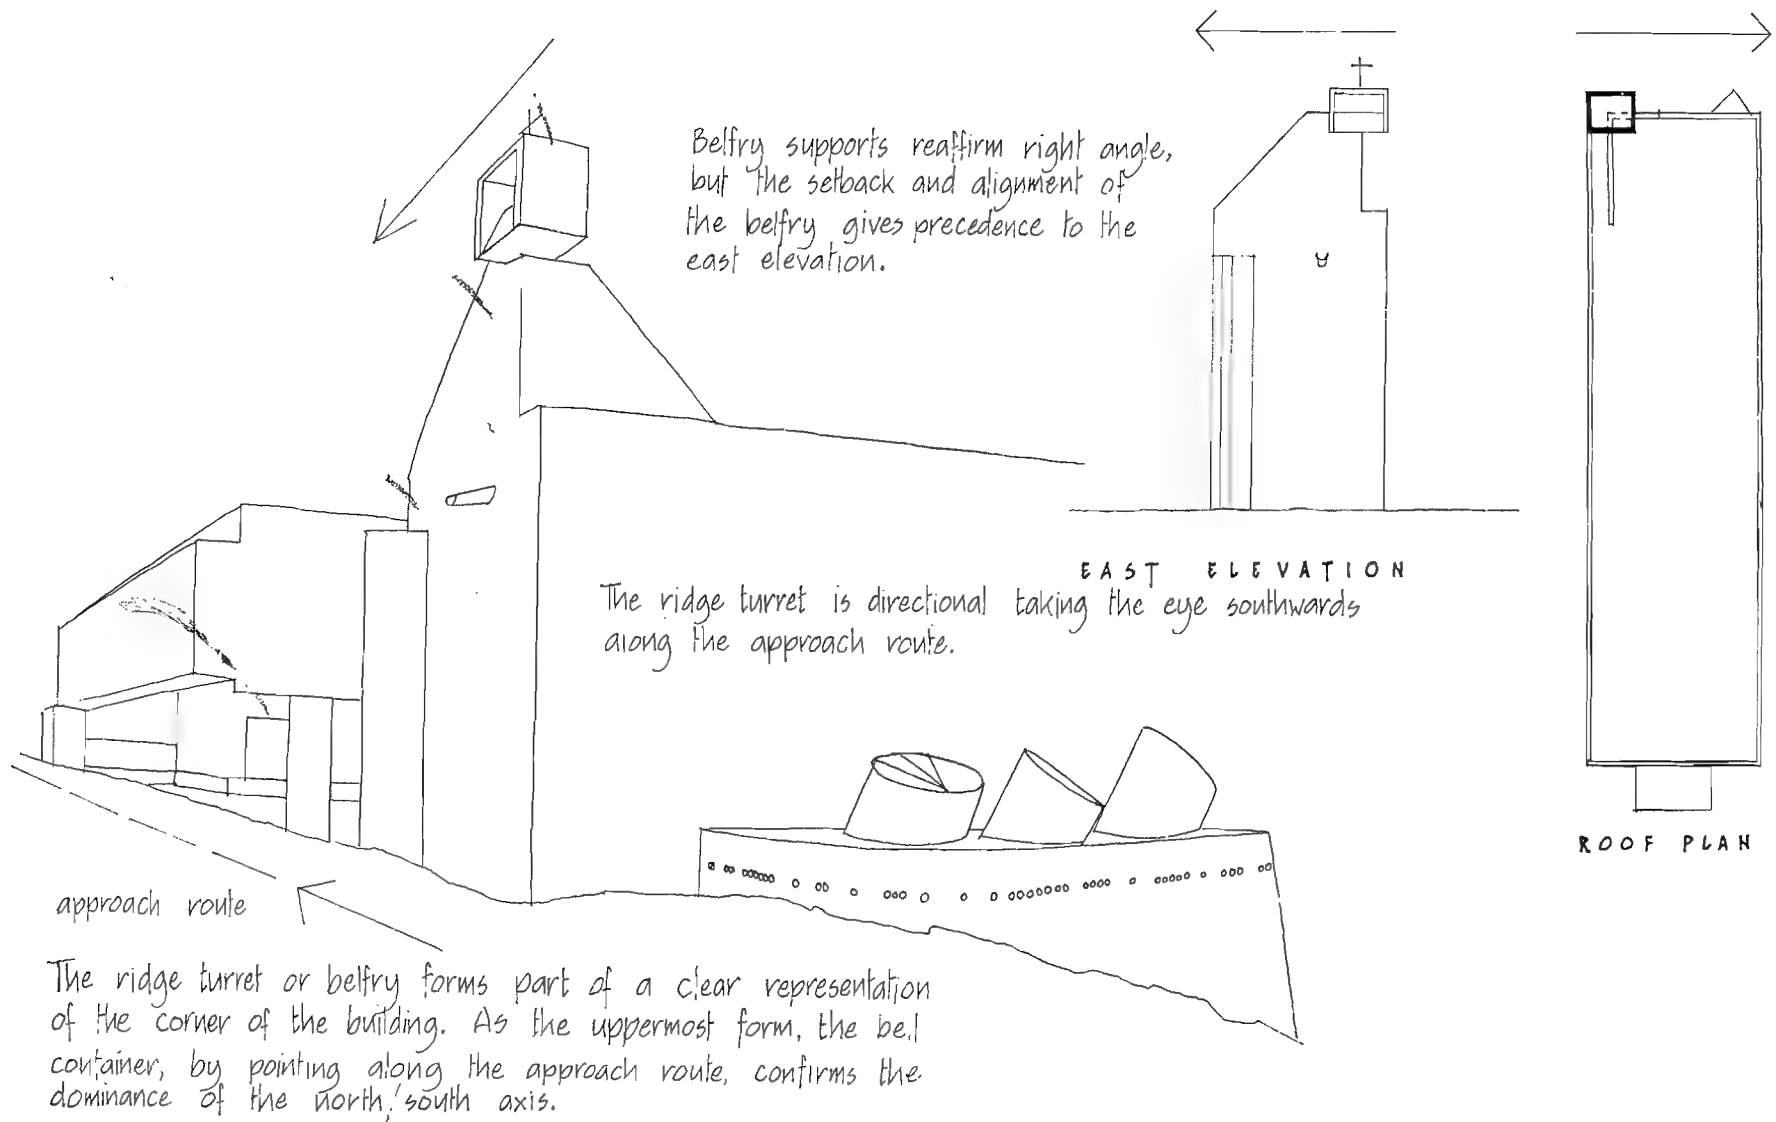 Belfry supports reaffirm right angle,
but the setback and alignment of
the belfry gives precedence to the
east elevation.
EAST ELEVATION
The ridge turret is directional taking the eye southwards
along the approach route.
ROOF PLAN
approach route
The ridge turret or belfry forms part of a clear representation
of the corner of the building. As the uppermost form, the bell
container, by pointing along the approach route, confirms the
dominance of the north/south axis.